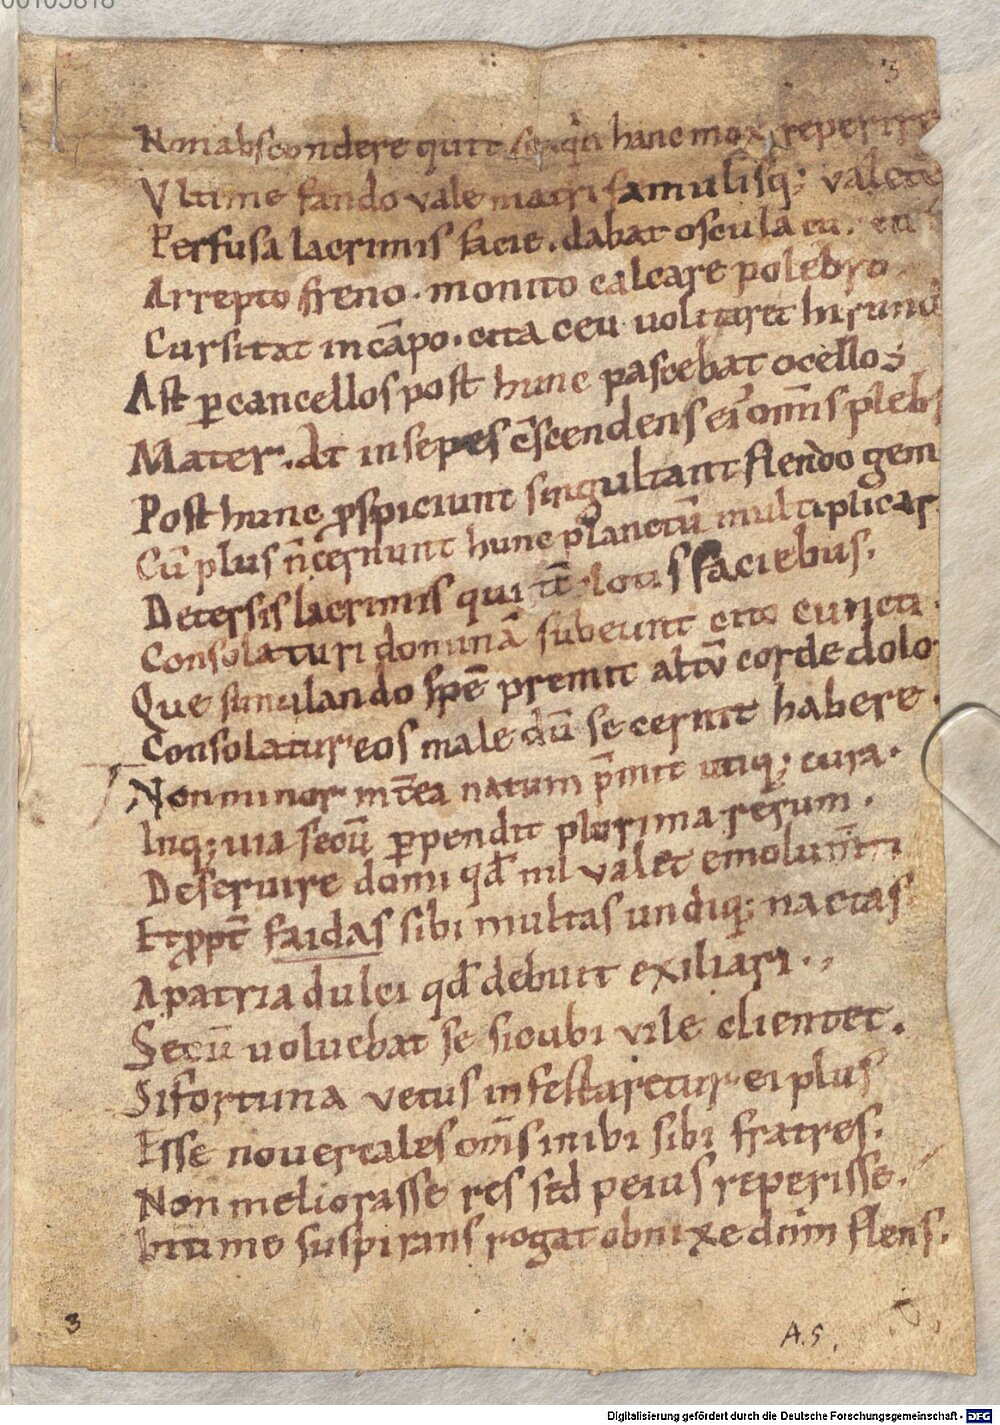 00103818
3
Non abscondere quit se q̇n hanc mox reperire
Vltime fando vale matri famulisq; valete
Perfusa lacrimis facie . dabat oscula cu.
Arrepto freno . monito calcare polebro
Cursitat in cāpo . cita ceu volitaret hirund
Ast ꝑ cancellos post hunc pascebat ocellos
Mater . At in sepes c̄scendens ei᷒ om̄s plebs
Post hunc ꝓspiciunt singultant flendo gem
Cū plus n̄ cernunt hunc planctū multiplicar
Detersis lacrimis qui tē lotis faciebus.
Consolaturi dominā subeunt cito cuncti
Que simulando spē premit altū corde dolo
Consolatur eos male dū se cernit habere.
Non minor int̄ea natum p̄mit utiq; cura.
Inq; uia secū ꝑpendit plurima rerum.
Deseruire domi qd̄ nil valet emolum̄ti
Et ꝓpt̄ faidas sibi multas undiq; nactas
A patria dulci qd̄ debuit exiliari.
Secū uoluebat se sicubi vile clientet.
Si fortuna vetus infestaretur ei plus
Esse nouercales om̄s inibi sibi fratres.
Non meliorasse res sed peius reperisse.
Intime suspirans rogat obnixe dn̄m flens.
3
A.5.
Digitalisierung gefördert durch die Deutsche Forschungsgemeinschaft - DFG